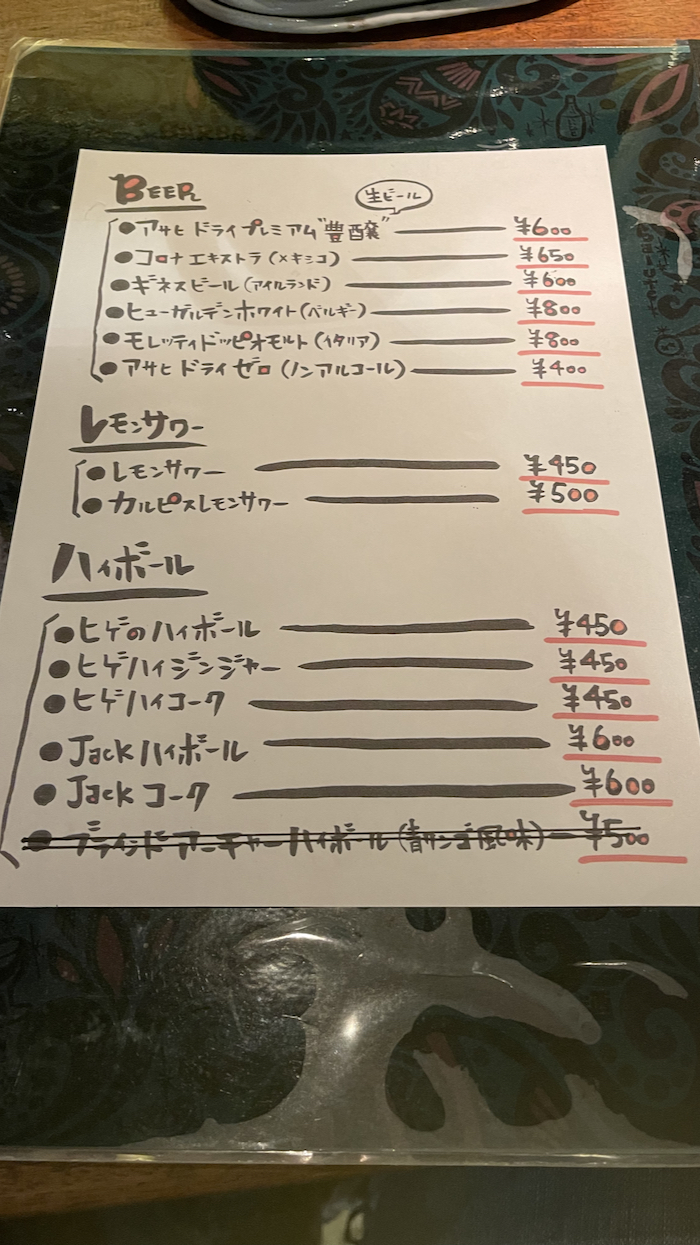 BEER
生ビール
●アサヒ ドライプレミアム"豊醸" ¥600
●コロナ エキストラ(メキシコ) ¥650
●ギネスビール(アイルランド) ¥600
●ヒューガルデンホワイト(ベルギー) ¥800
●モレッティドッピオモルト(イタリア) ¥800
●アサヒ ドライ ゼロ(ノンアルコール) ¥400
レモンサワー
●レモンサワー ¥450
●カルピスレモンサワー ¥500
ハイボール
●ヒゲのハイボール ¥450
●ヒゲハイジンジャー ¥450
●ヒゲハイコーク ¥450
●Jackハイボール ¥600
●Jack コーク ¥600
●ブラインドアーチャーハイボール(青リンゴ風味) ¥500